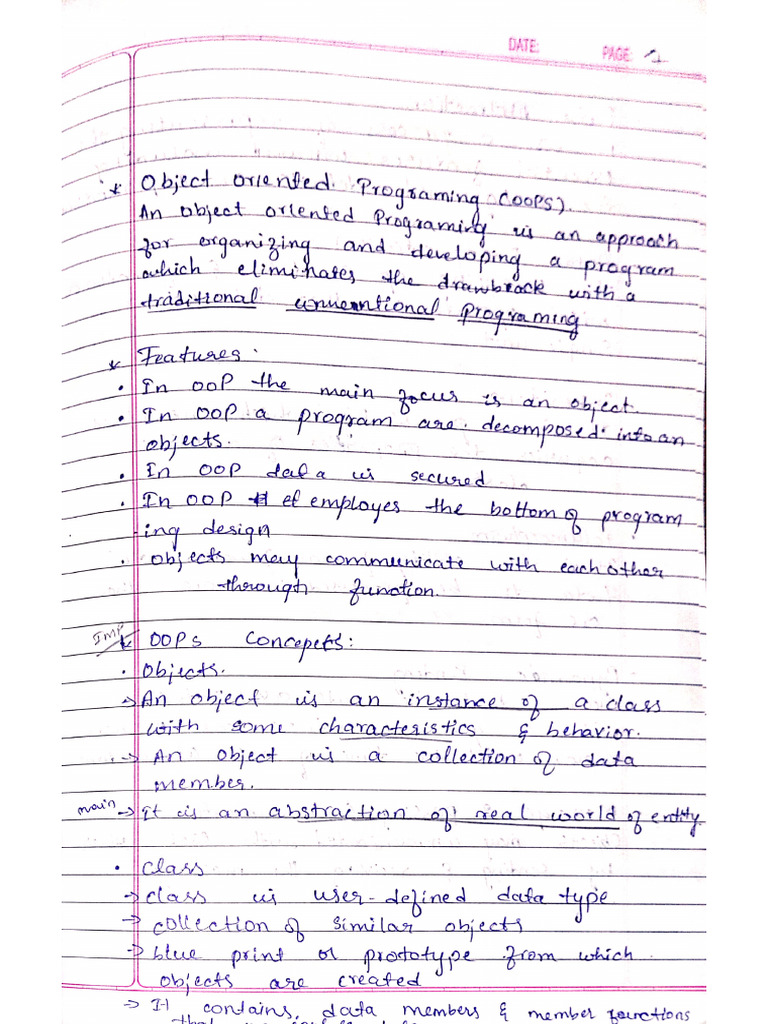 DATE:
PAGE: 1
* Object oriented. Programing (OOPS)
An object oriented Programing is an approach
for organizing and developing a program
which eliminates the drawback with a
traditional convenntional programing
* Features:
• In OOP the main focus is an object.
• In OOP a program are decomposed into an
objects.
• In OOP data is secured
• In OOP it employes the bottom of program
ing design
• objects may communicate with each other
through function.
IMP * OOPs Concepets:
• Objects.
→ An object is an instance of a class
with some characteristics & behavior.
→ An object is a collection of data
member.
main → it is an abstraction of real world of entity.
• Class
→ class is user-defined data type
→ collection of similar objects
→ blue print or prototype from which
objects are created
→ It contains, data members & member functions